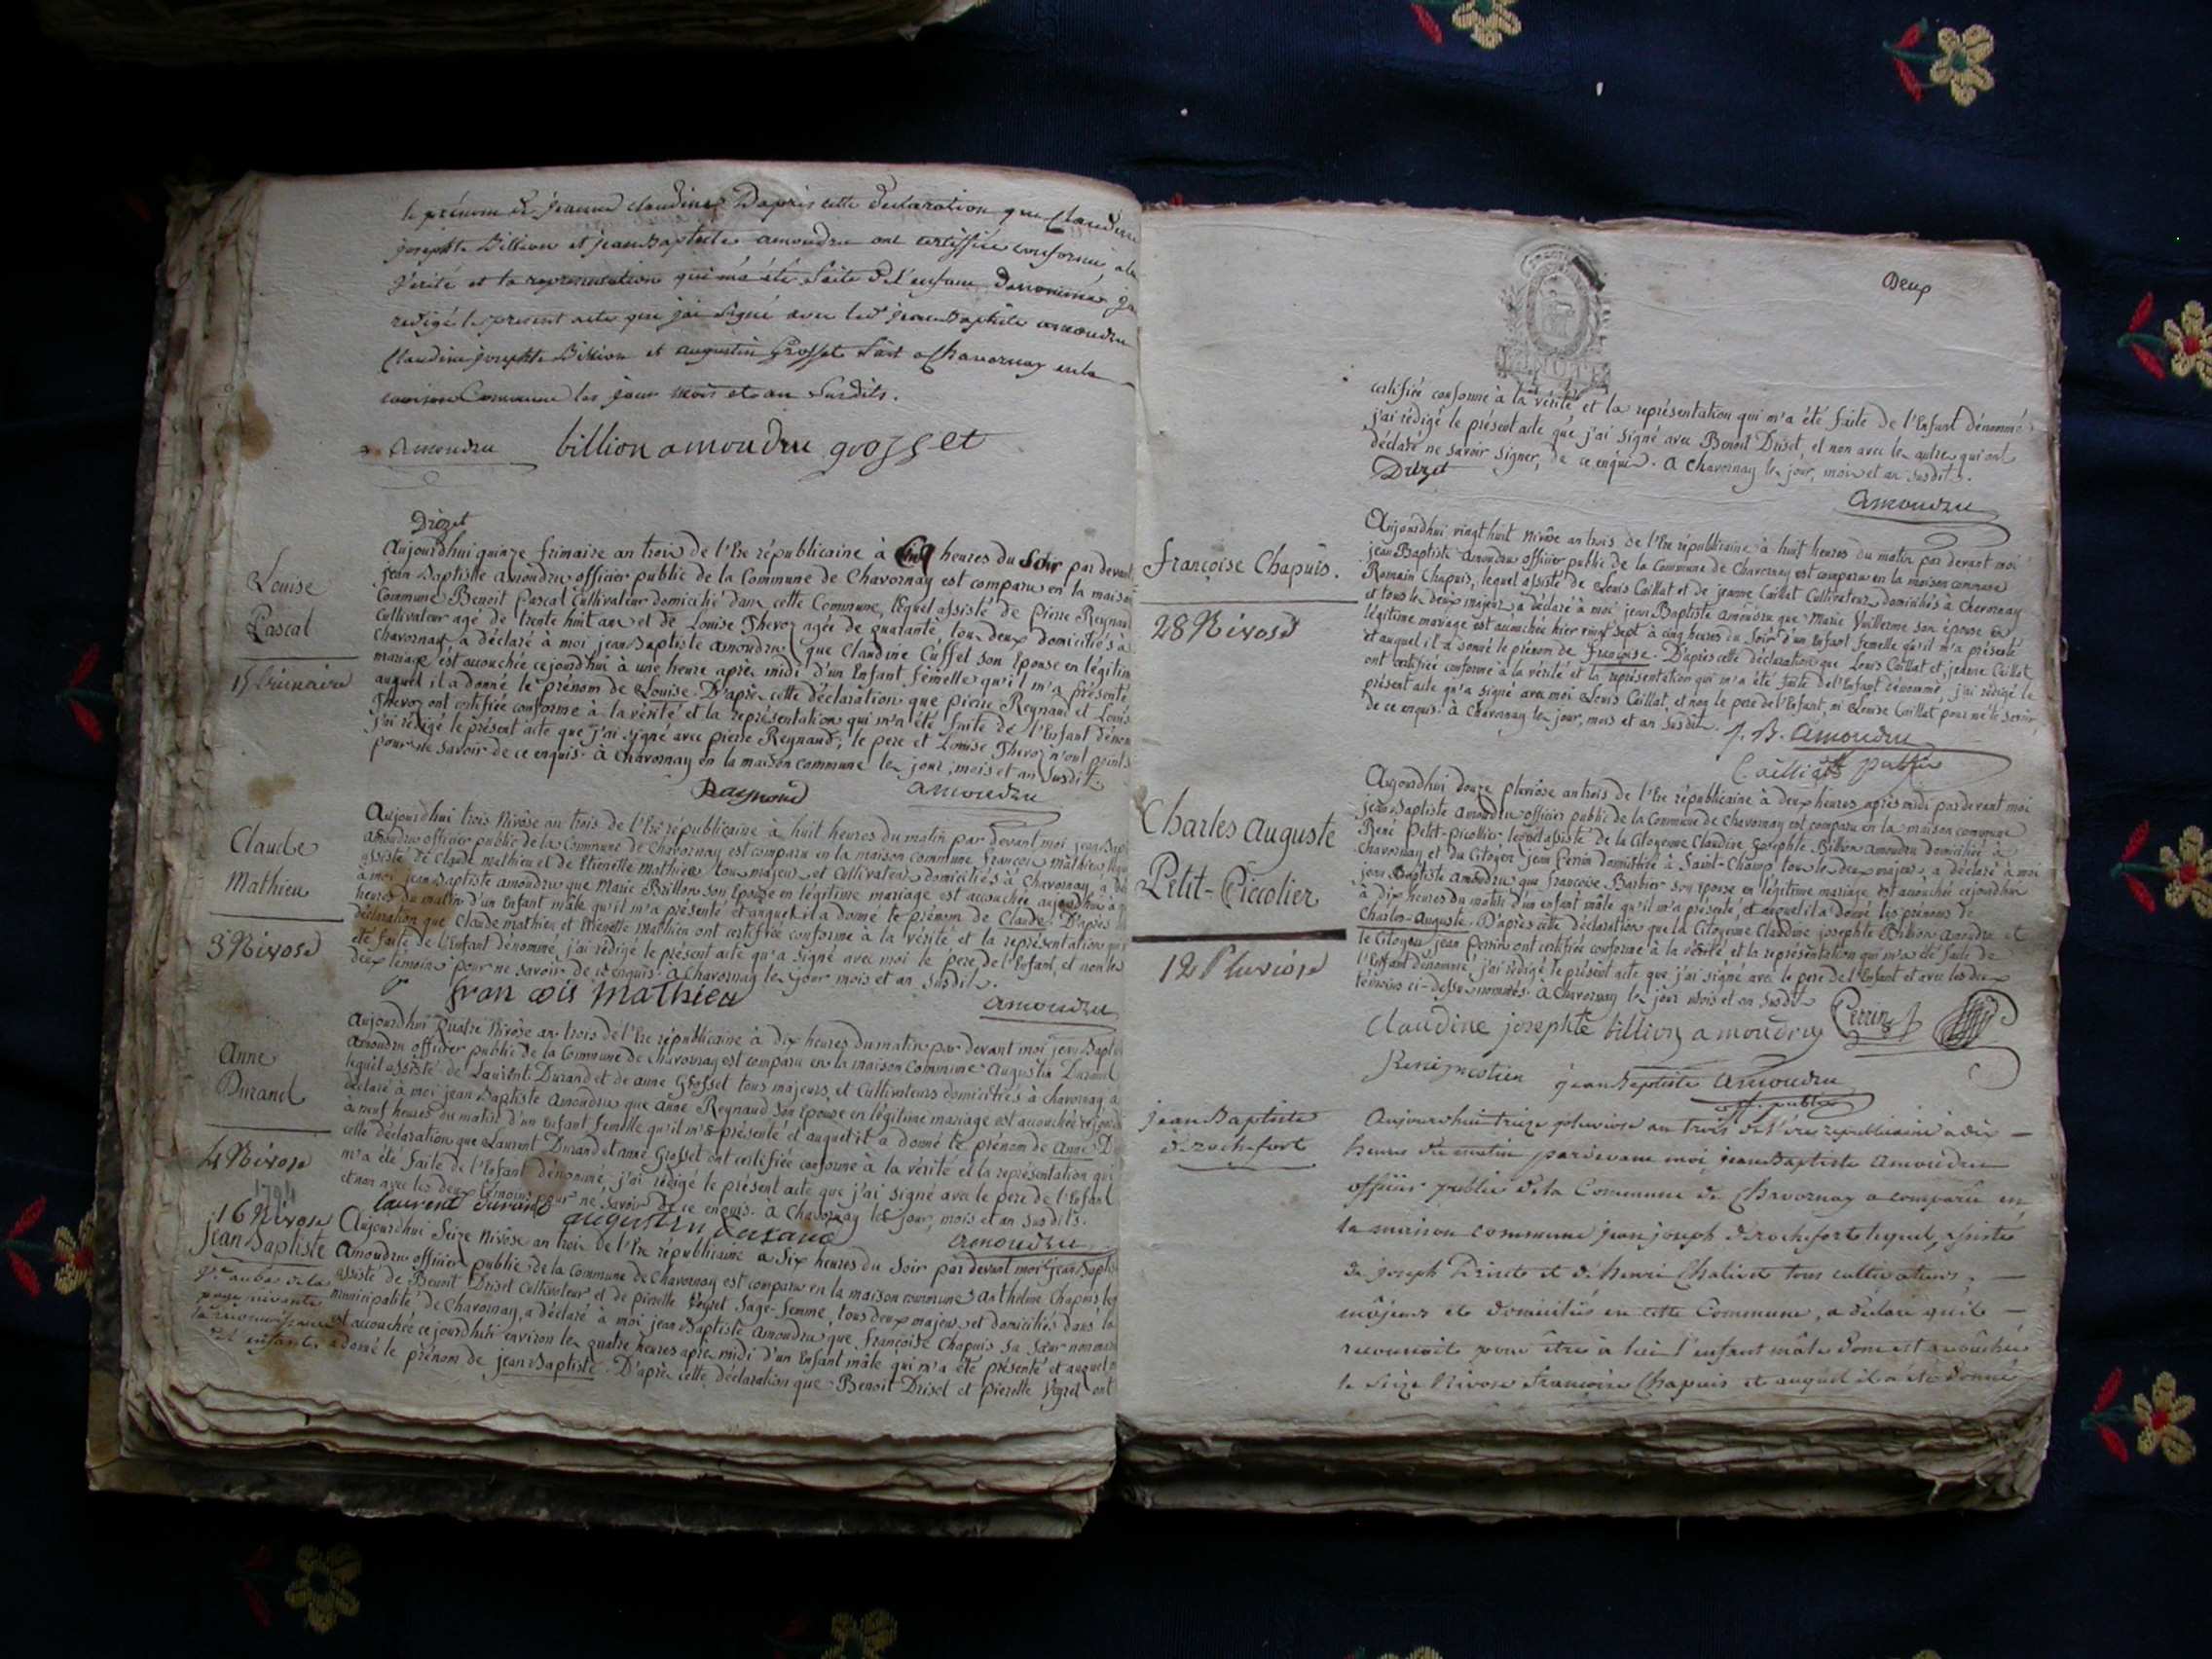 le prénom de jeanne claudine D'après cette déclaration que Claudine
josephte Billion et jean Baptiste amoudru ont certiffiée conforme, a la
vérité et la representation qui m'a été faite de l'enfant denommée j'ai
redigé le present acte que j'ai signé avec led jean Baptiste amoudru
Claudine josephte Billion et augustin Grosset fait a Chavornay en la
maison Commune les jour mois et an Susdits.
Amoudru billion amoudru grosset
Drizet
Louise
Pascal
15 frimaire
Aujourdhui quinze frimaire an trois de l'Ere républicaine à Cinq heures du Soir par devant
jean Baptiste Amoudru officier public de la Commune de Chavornay est comparu en la maison
Commune Benoit Pascal Cultivateur domicilié dans cette Commune, lequel assisté de Pierre Reynaud
Cultivateur agé de trente huit ans et de Louise Thevoz agée de quarante, tous deux domiciliés à
Chavornay a déclaré à moi jean Baptiste amoudru que Claudine Cuffet son Epouse en légitime
mariage est accouchée cejourdhui à une heure après midi d'un Enfant femelle qu'il m'a présenté
auquel il a donné le prénom de Louise. D'après cette déclaration que pierre Reynaud et Louise
Thevoz ont certifiée conforme à la vérité et la représentation qui m'a été faite de l'Enfant dénom
j'ai rédigé le présent acte que j'ai signé avec pierre Reynaud; le pere et Louise Thevoz n'ont point
pour ne savoir de ce enquis. à Chavornay en la maison commune les jour, mois et an susdits
Raymond amoudru
Claude
Mathieu
3 Nivose
Aujourdhui trois Nivôse an trois de l'Ere républicaine à huit heures du matin par devant moi jean Bapt
Amoudru officier public de la Commune de Chavornay est comparu en la maison commune François Mathieu lequel
assisté de Claude mathieu et de Etienette Mathieu tous majeurs et Cultivateurs domiciliés à Chavornay, a dé
à moi jean Baptiste amoudru que Marie Brillon son Epouse en légitime mariage est accouchée aujourdhui à
heures du matin d'un Enfant mâle qu'il m'a présenté et auquel il a donné le prénom de Claude. D'après
déclaration que Claude mathieu et Etienette Mathieu ont certifiée conforme à la vérité et la représentation qui
été faite de l'Enfant dénommé, j'ai rédigé le présent acte qu'a signé avec moi le pere de l'Enfant, et non les
deux témoins pour ne savoir de ce enquis. à Chavornay les jour mois et an susdits.
fran cois Mathieu amoudru
Anne
Durand
4 Nivose
1794
Aujourdhui Quatre Nivôse an trois de l'Ere républicaine à Dix heures du matin par devant moi jean Bapti
Amoudru officier public de la Commune de Chavornay est comparu en la maison Commune Augustin Durand
lequel assisté de Laurent Durand et de anne Grosset tous majeurs, et Cultivateurs domiciliés à Chavornay a
déclaré à moi jean Baptiste Amoudru que Anne Reynaud son Epouse en légitime mariage est accouchée cejourd
à neuf heures du matin d'un Enfant femelle qu'il m'a présenté et auquel il a donné le prénom de Anne. D
cette déclaration que Laurent Durand et anne Grosset ont certifiée conforme à la vérité et la représentation qui
m'a été faite de l'Enfant dénommé, j'ai rédigé le présent acte que j'ai signé avec le pere de l'Enfant
et non avec les deux témoins pour ne savoir de ce enquis. a Chavornay les jour, mois et an susdits.
laurent durand augustin durand amoudru
16 Nivose
jean Baptiste
de la
page suivante
la reconnaissance
enfant
Aujourdhui Seize Nivôse an trois de l'Ere républicaine a Six heures du Soir par devant moi jean Baptis
Amoudru officier public de la Commune de Chavornay est comparu en la maison commune Anthelme Chapuis leq
assisté de Benoit Driset Cultivateur et de pierrette Veyret Sage-femme, tous deux majeurs et domiciliés dans la
municipalité de Chavornay, a déclaré à moi jean Baptiste Amoudru que Françoise Chapuis sa Sœur non mari
est accouchée cejourdhui environ les quatre heures après midi d'un Enfant mâle qui m'a été présenté et auquel
a donné le prénom de jean Baptiste. D'après cette déclaration que Benoit Driset et pierrette Veyret ont
Deux
certifiée conforme à la vérité et la représentation qui m'a été faite de l'Enfant dénommé
j'ai rédigé le présent acte que j'ai signé avec Benoit Driset, et non avec les autres qui ont
déclaré ne savoir signer, de ce enquis. a Chavornay les jour, mois et an susdits.
Drizet
Amoudru
françoise Chapuis.
28 Nivose
Aujourdhui vingt huit Nivôse an trois de l'Ere républicaine à huit heures du matin par devant moi
jean Baptiste Amoudru officier public de la Commune de Chavornay est comparu en la maison commune
Romain Chapuis, lequel assisté de Louis Caillat et de jeanne Caillat Cultivateurs domiciliés à Chavornay
et tous les deux majeurs a déclaré à moi jean Baptiste Amoudru que Marie Vuillerme son épouse en
légitime mariage est accouchée hier vingt sept à cinq heures du Soir d'un Enfant femelle qu'il m'a présenté
et auquel il a donné le prénom de françoise. D'après cette déclaration que Louis Caillat et jeanne Caillat
ont certifiée conforme à la vérité et la représentation qui m'a été faite de l'Enfant dénommé, j'ai rédigé le
présent acte qu'a signé avec moi Louis Caillat, et non le pere de l'Enfant, ni Louise Caillat pour ne le savoir
de ce enquis. à Chavornay les jour, mois et an susdits. J. B. Amoudru
Charles Auguste
Petit-Piccolier
12 Pluviose
Aujourdhui douze pluviôse an trois de l'Ere républicaine à deux heures après midi par devant moi
jean Baptiste Amoudru officier public de la Commune de Chavornay est comparu en la maison commune
René Petit-picollier lequel assisté de la Citoyenne Claudine Josephte Billion Amoudru domiciliée à
Chavornay et du Citoyen Jean Perrin domicilié à Saint-Champ tous les deux majeurs, a déclaré à moi
jean Baptiste Amoudru que françoise Barbier son épouse en légitime mariage est accouchée cejourdhui
à dix heures du matin d'un enfant mâle qu'il m'a présenté, et auquel il a donné les prénoms de
Charles-Auguste. D'après cette déclaration que la Citoyenne Claudine josephte Billion Amoudru et
le Citoyen jean Perrin ont certifiée conforme à la vérité et la représentation qui m'a été faite de
l'Enfant dénommé j'ai rédigé le présent acte que j'ai signé avec le pere de l'Enfant et avec les deux
témoins ci-dessus nommés. à Chavornay les jour mois et an susdits
Perrin
Claudine josephte billion amoudru
jean Baptiste Amoudru
off. public
jean Baptiste
derochefort
Aujourdhuit treize pluviose an trois de l'ère republicaine à dix
heures du matin pardevant moi jean Baptiste Amoudru
officier public de la Commune de Chavornay a comparu en
la maison commune jean joseph derochefort lequel, assisté
de joseph Driset et de henri Chalivet tous cultivateurs,
majeurs et domiciliés en cette Commune, a déclaré qu'il
reconnoit pour être à lui l'enfant mâle dont est accouchée
le seize Nivose francoise Chapuis et auquel il a été donné